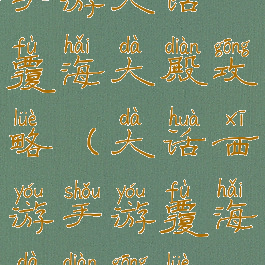 游 大 话
fù hǎi dà diàn gōng
覆 海 大 殿 攻
lüè dà huà xī
略 ( 大 话 西
yóu shǒu yóu fù hǎi
游 手 游 覆 海
dà diàn gōng lüè